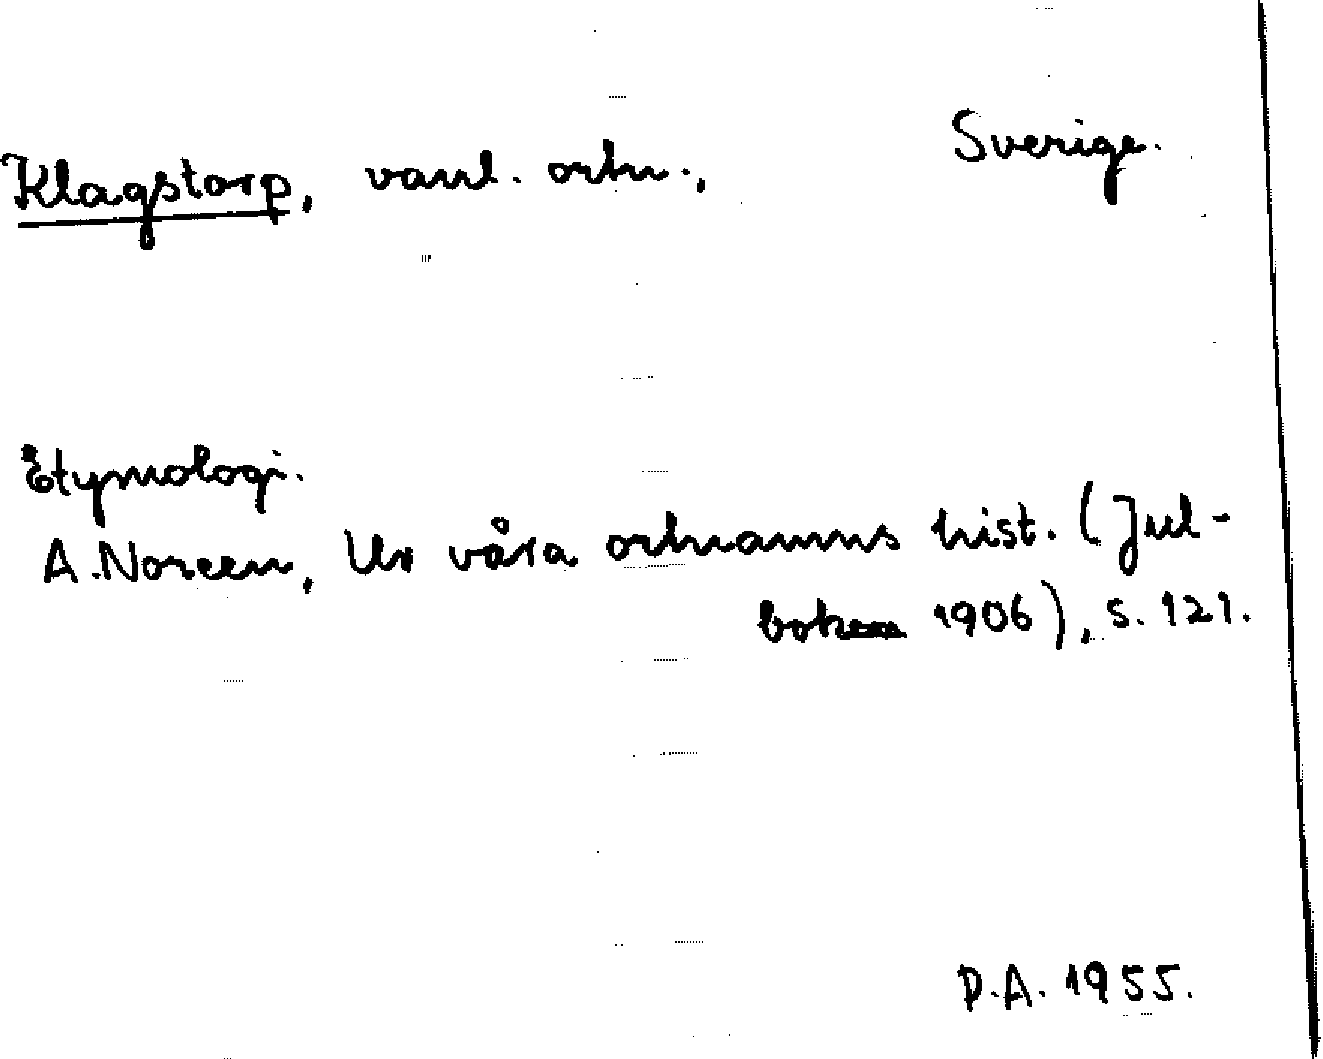 Klagstorp, vanl. ortn., Sverige.
Etymologi.
A. Noreen, Ur våra ortnamns hist. (Jul-
boken 1906), s. 121.
D.A. 1955.